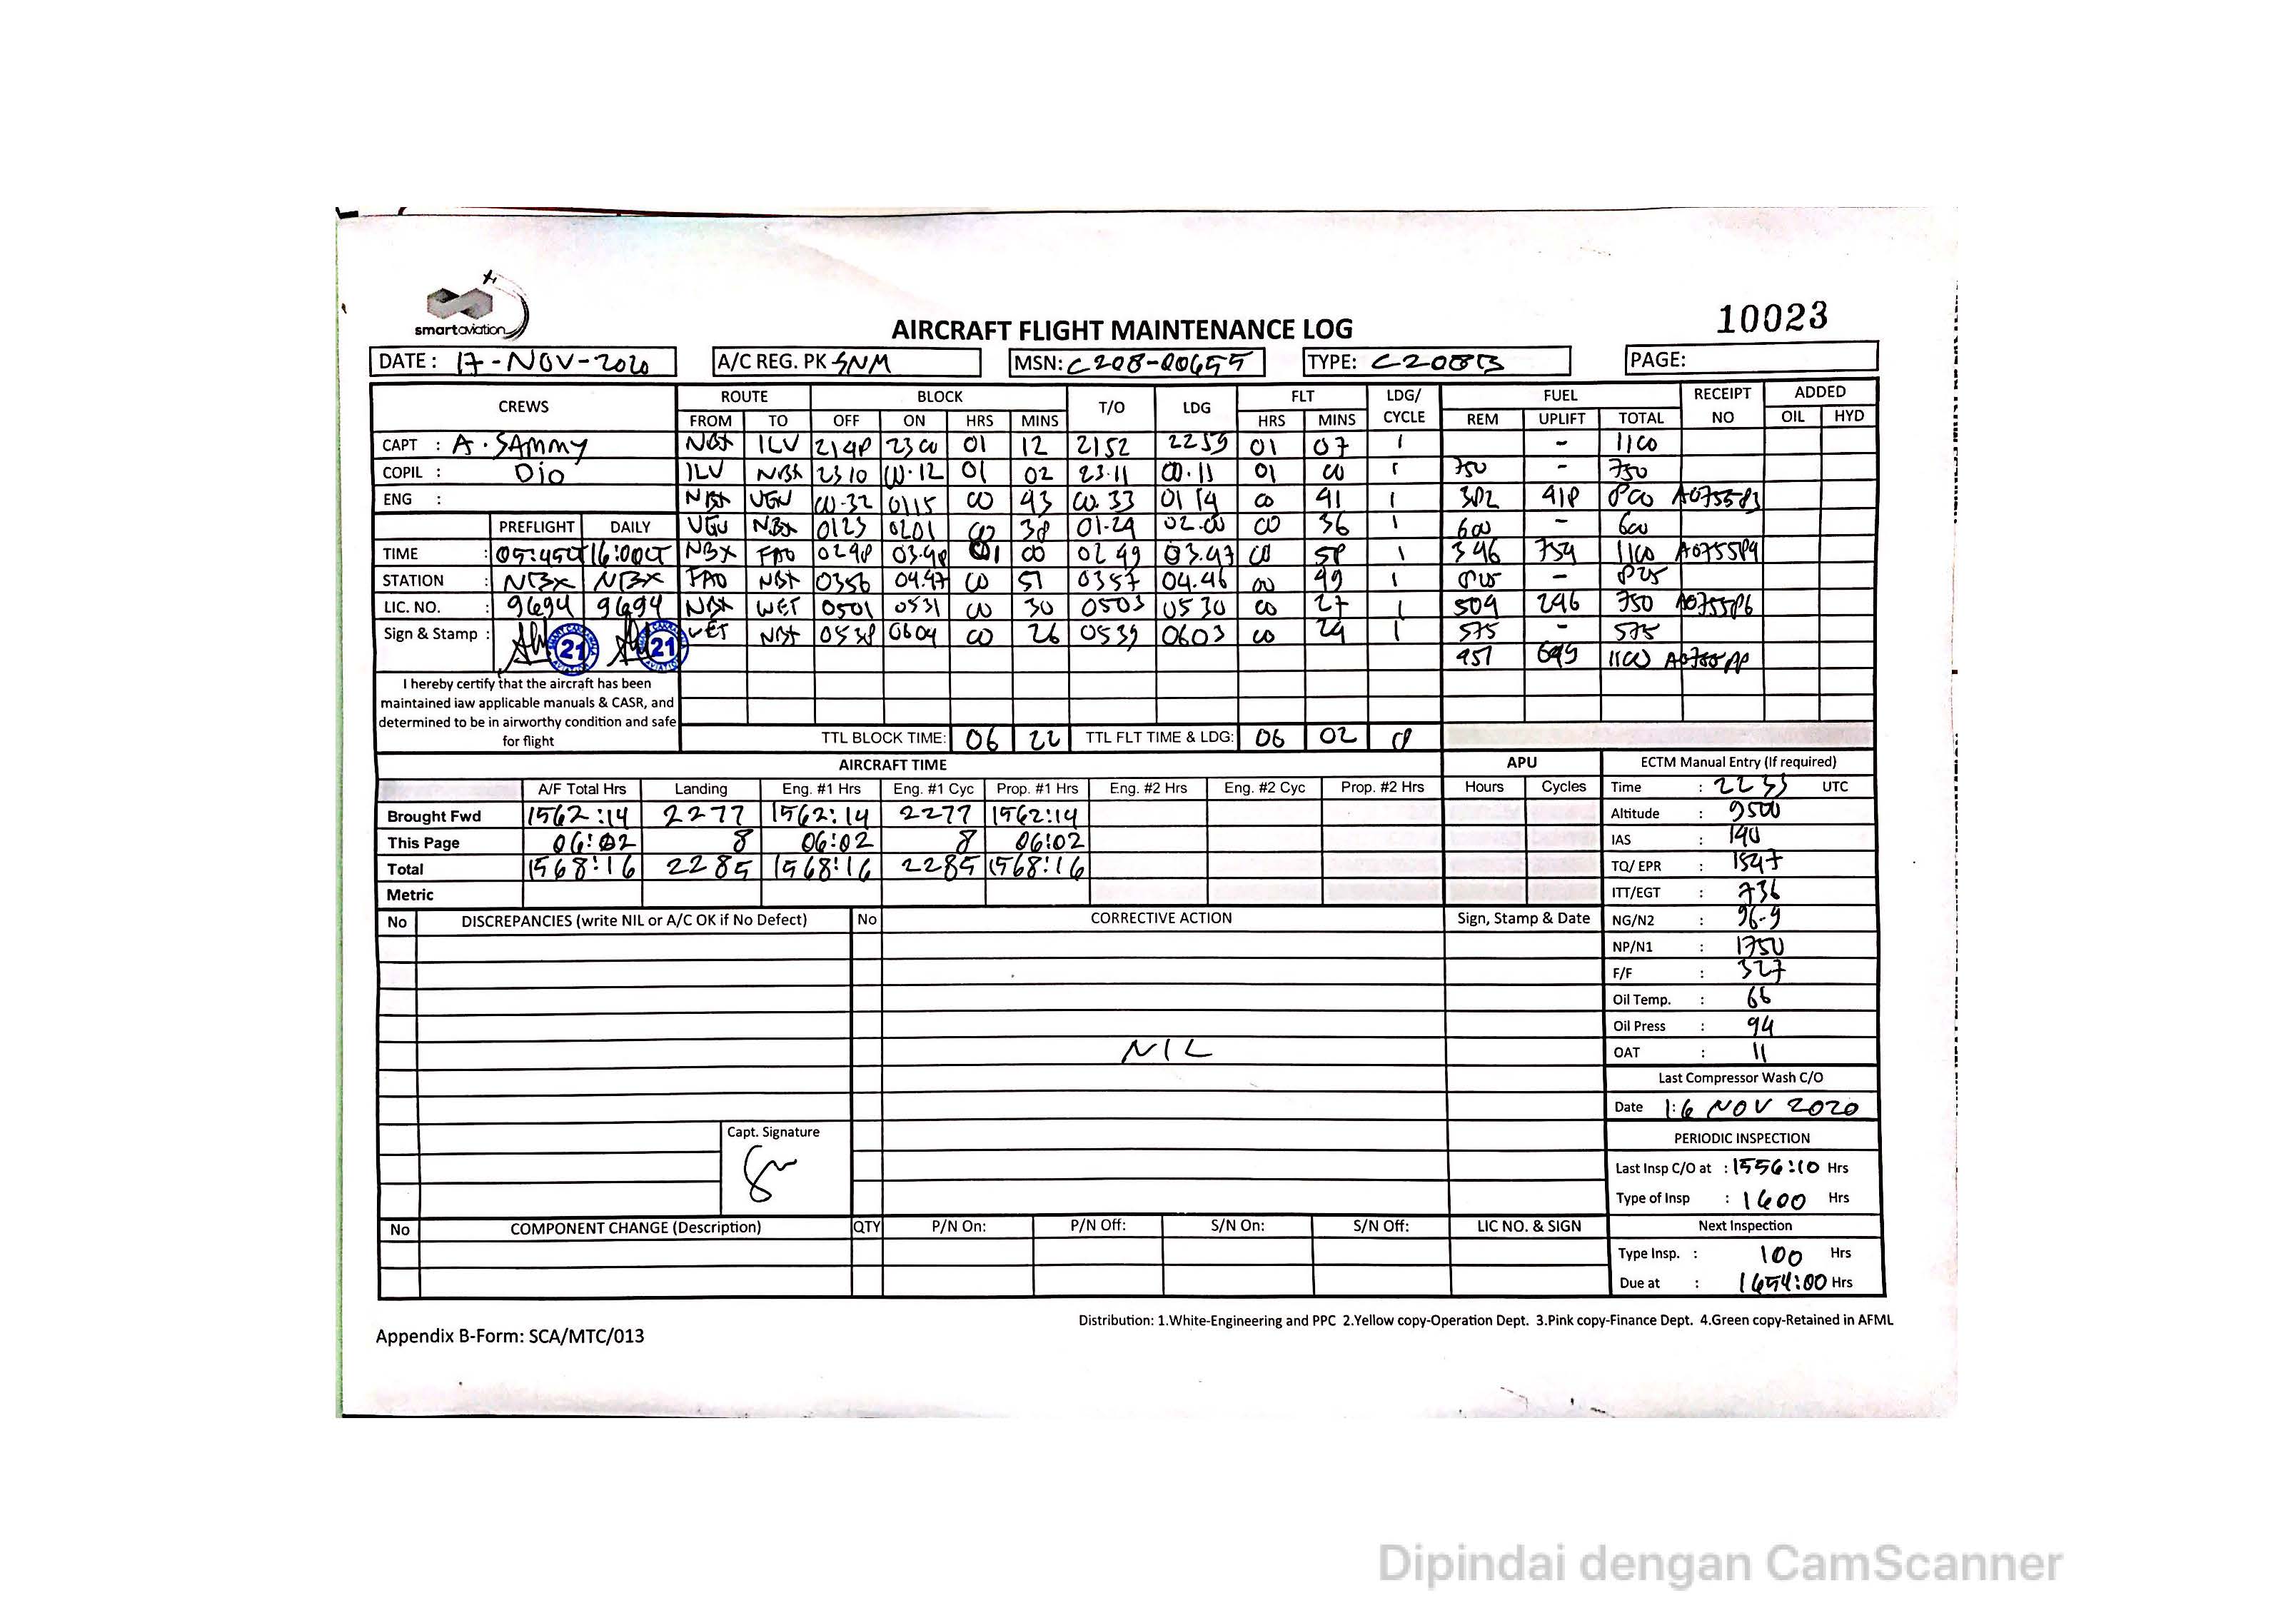 smartaviation
AIRCRAFT FLIGHT MAINTENANCE LOG
10023
DATE: 17-NOV-2020 A/C REG. PK SNM MSN: C208-00655 TYPE: C208B PAGE:
CREWS ROUTE BLOCK T/O LDG FLT LDG/ CYCLE FUEL RECEIPT NO ADDED
FROM TO OFF ON HRS MINS HRS MINS REM UPLIFT TOTAL OIL HYD
CAPT : A. SAMMY NBX ILV 2148 2300 01 12 2152 2259 01 07 1 - 1100
COPIL : Dio ILV NBX 2310 00.12 01 02 23.11 00.11 01 00 1 750 - 750
ENG : NBX UGU 00-32 0115 00 43 00.33 0114 00 41 1 382 418 800 A075583
PREFLIGHT DAILY UGU NBX 0123 0201 00 38 01.24 02.00 00 36 1 600 - 600
TIME : 05:45LT 16:00LT NBX FAO 0248 03.48 01 00 0249 03.47 00 58 1 346 754 1100 A075584
STATION : NBX NBX FAO NBX 0356 04.47 00 51 0357 04.46 00 49 1 825 - 825
LIC. NO. : 9694 9694 NBX WET 0501 0531 00 30 0503 0530 00 27 1 504 246 750 A075586
Sign & Stamp : 21 21 WET NBX 0538 0604 00 26 0539 0603 00 24 1 575 - 575
451 649 1100
I hereby certify that the aircraft has been
maintained iaw applicable manuals & CASR, and
determined to be in airworthy condition and safe
for flight
TTL BLOCK TIME: 06 22 TTL FLT TIME & LDG: 06 02 8
AIRCRAFT TIME APU ECTM Manual Entry (If required)
A/F Total Hrs Landing Eng. #1 Hrs Eng. #1 Cyc Prop. #1 Hrs Eng. #2 Hrs Eng. #2 Cyc Prop. #2 Hrs Hours Cycles Time : 2233 UTC
Brought Fwd 1562:14 2277 1562:14 2277 1562:14 Altitude : 9500
This Page 06:02 8 06:02 8 06:02 IAS : 140
Total 1568:16 2285 1568:16 2285 1568:16 TQ/ EPR : 1547
Metric ITT/EGT : 736
No DISCREPANCIES (write NIL or A/C OK if No Defect) No CORRECTIVE ACTION Sign, Stamp & Date NG/N2 : 96-9
NP/N1 : 1750
F/F : 327
Oil Temp. : 66
Oil Press : 94
NIL
OAT : 11
Last Compressor Wash C/O
Date : 16 NOV 2020
Capt. Signature
PERIODIC INSPECTION
Last Insp C/O at : 1556:10 Hrs
Type of Insp : 1600 Hrs
No COMPONENT CHANGE (Description) QTY P/N On: P/N Off: S/N On: S/N Off: LIC NO. & SIGN Next Inspection
Type Insp. : 100 Hrs
Due at : 1654:00 Hrs
Distribution: 1.White-Engineering and PPC 2.Yellow copy-Operation Dept. 3.Pink copy-Finance Dept. 4.Green copy-Retained in AFML
Appendix B-Form: SCA/MTC/013
Dipindai dengan CamScanner